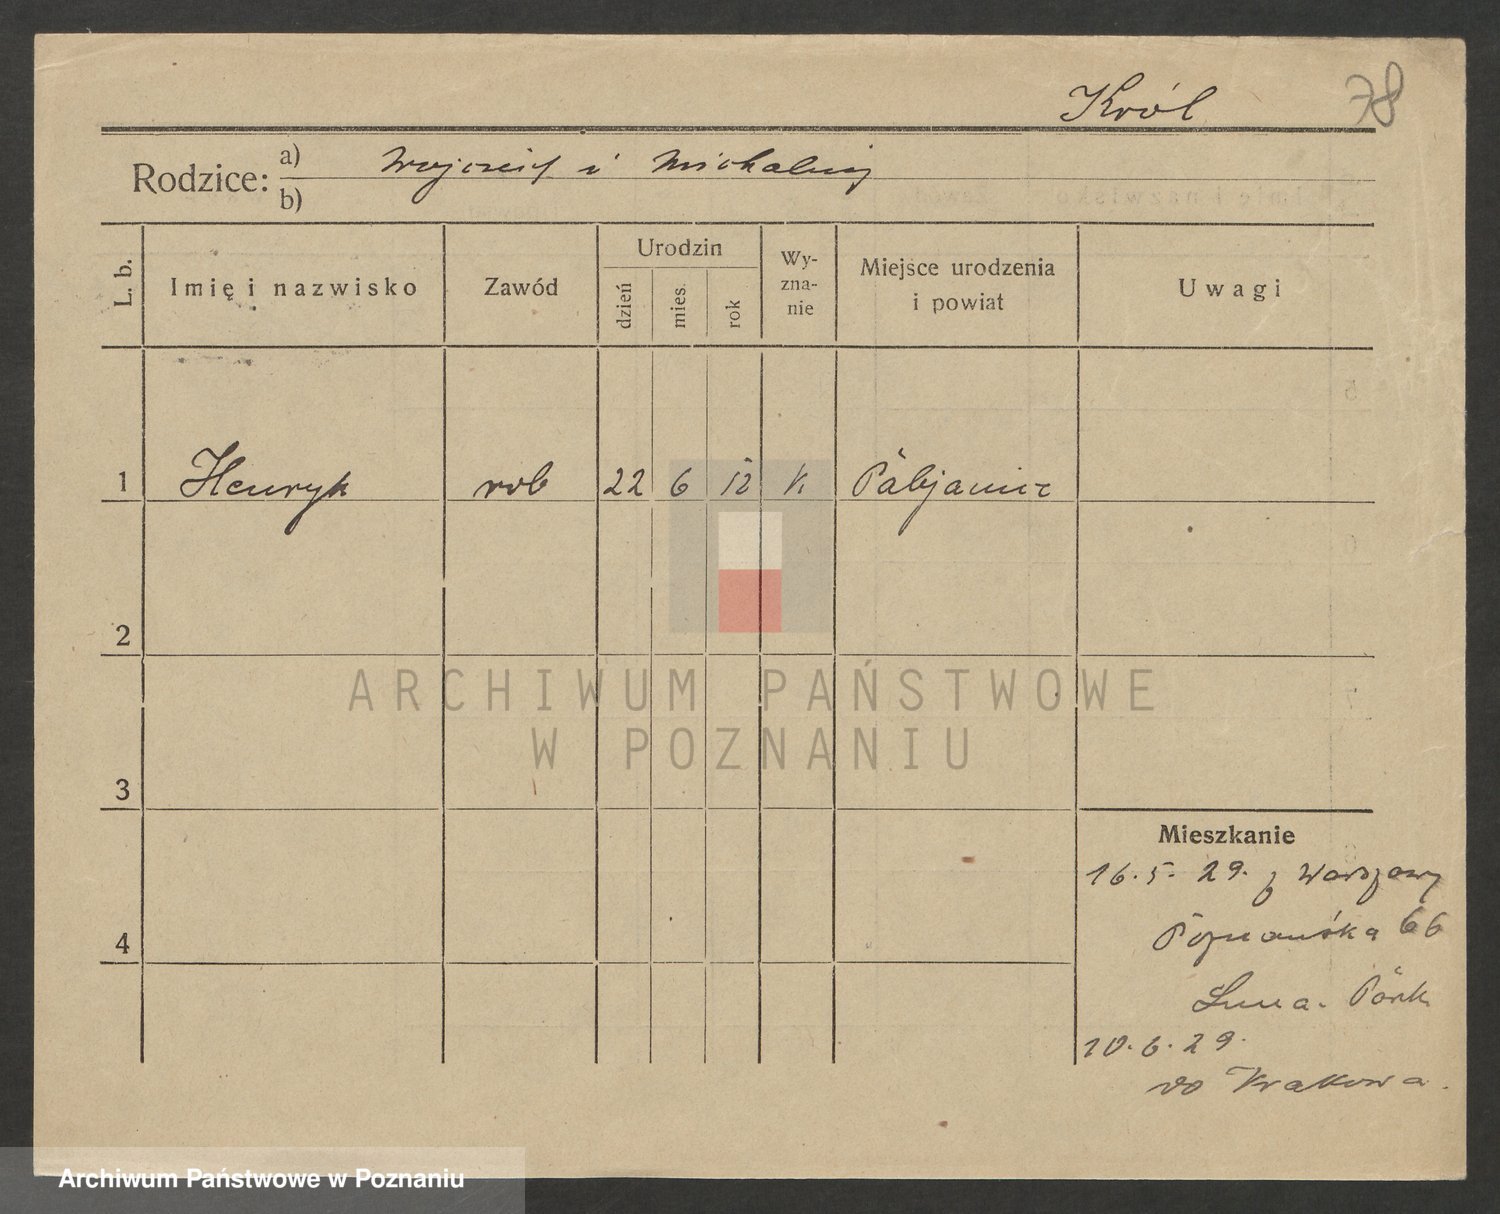 Król 78
Rodzice: a) Wojciech i Michaliny
b)
L. b. Imię i nazwisko Zawód Urodzin dzień mies. rok Wy-zna-nie Miejsce urodzenia i powiat Uwagi
1 Henryk rob 22 6 12 K Pabjanice
2
3
4
Mieszkanie
16.5.29. z Warszawy
Poznańska 66
Luna-Park
10.6.29.
do Krakowa.
ARCHIWUM PAŃSTWOWE
W POZNANIU
Archiwum Państwowe w Poznaniu